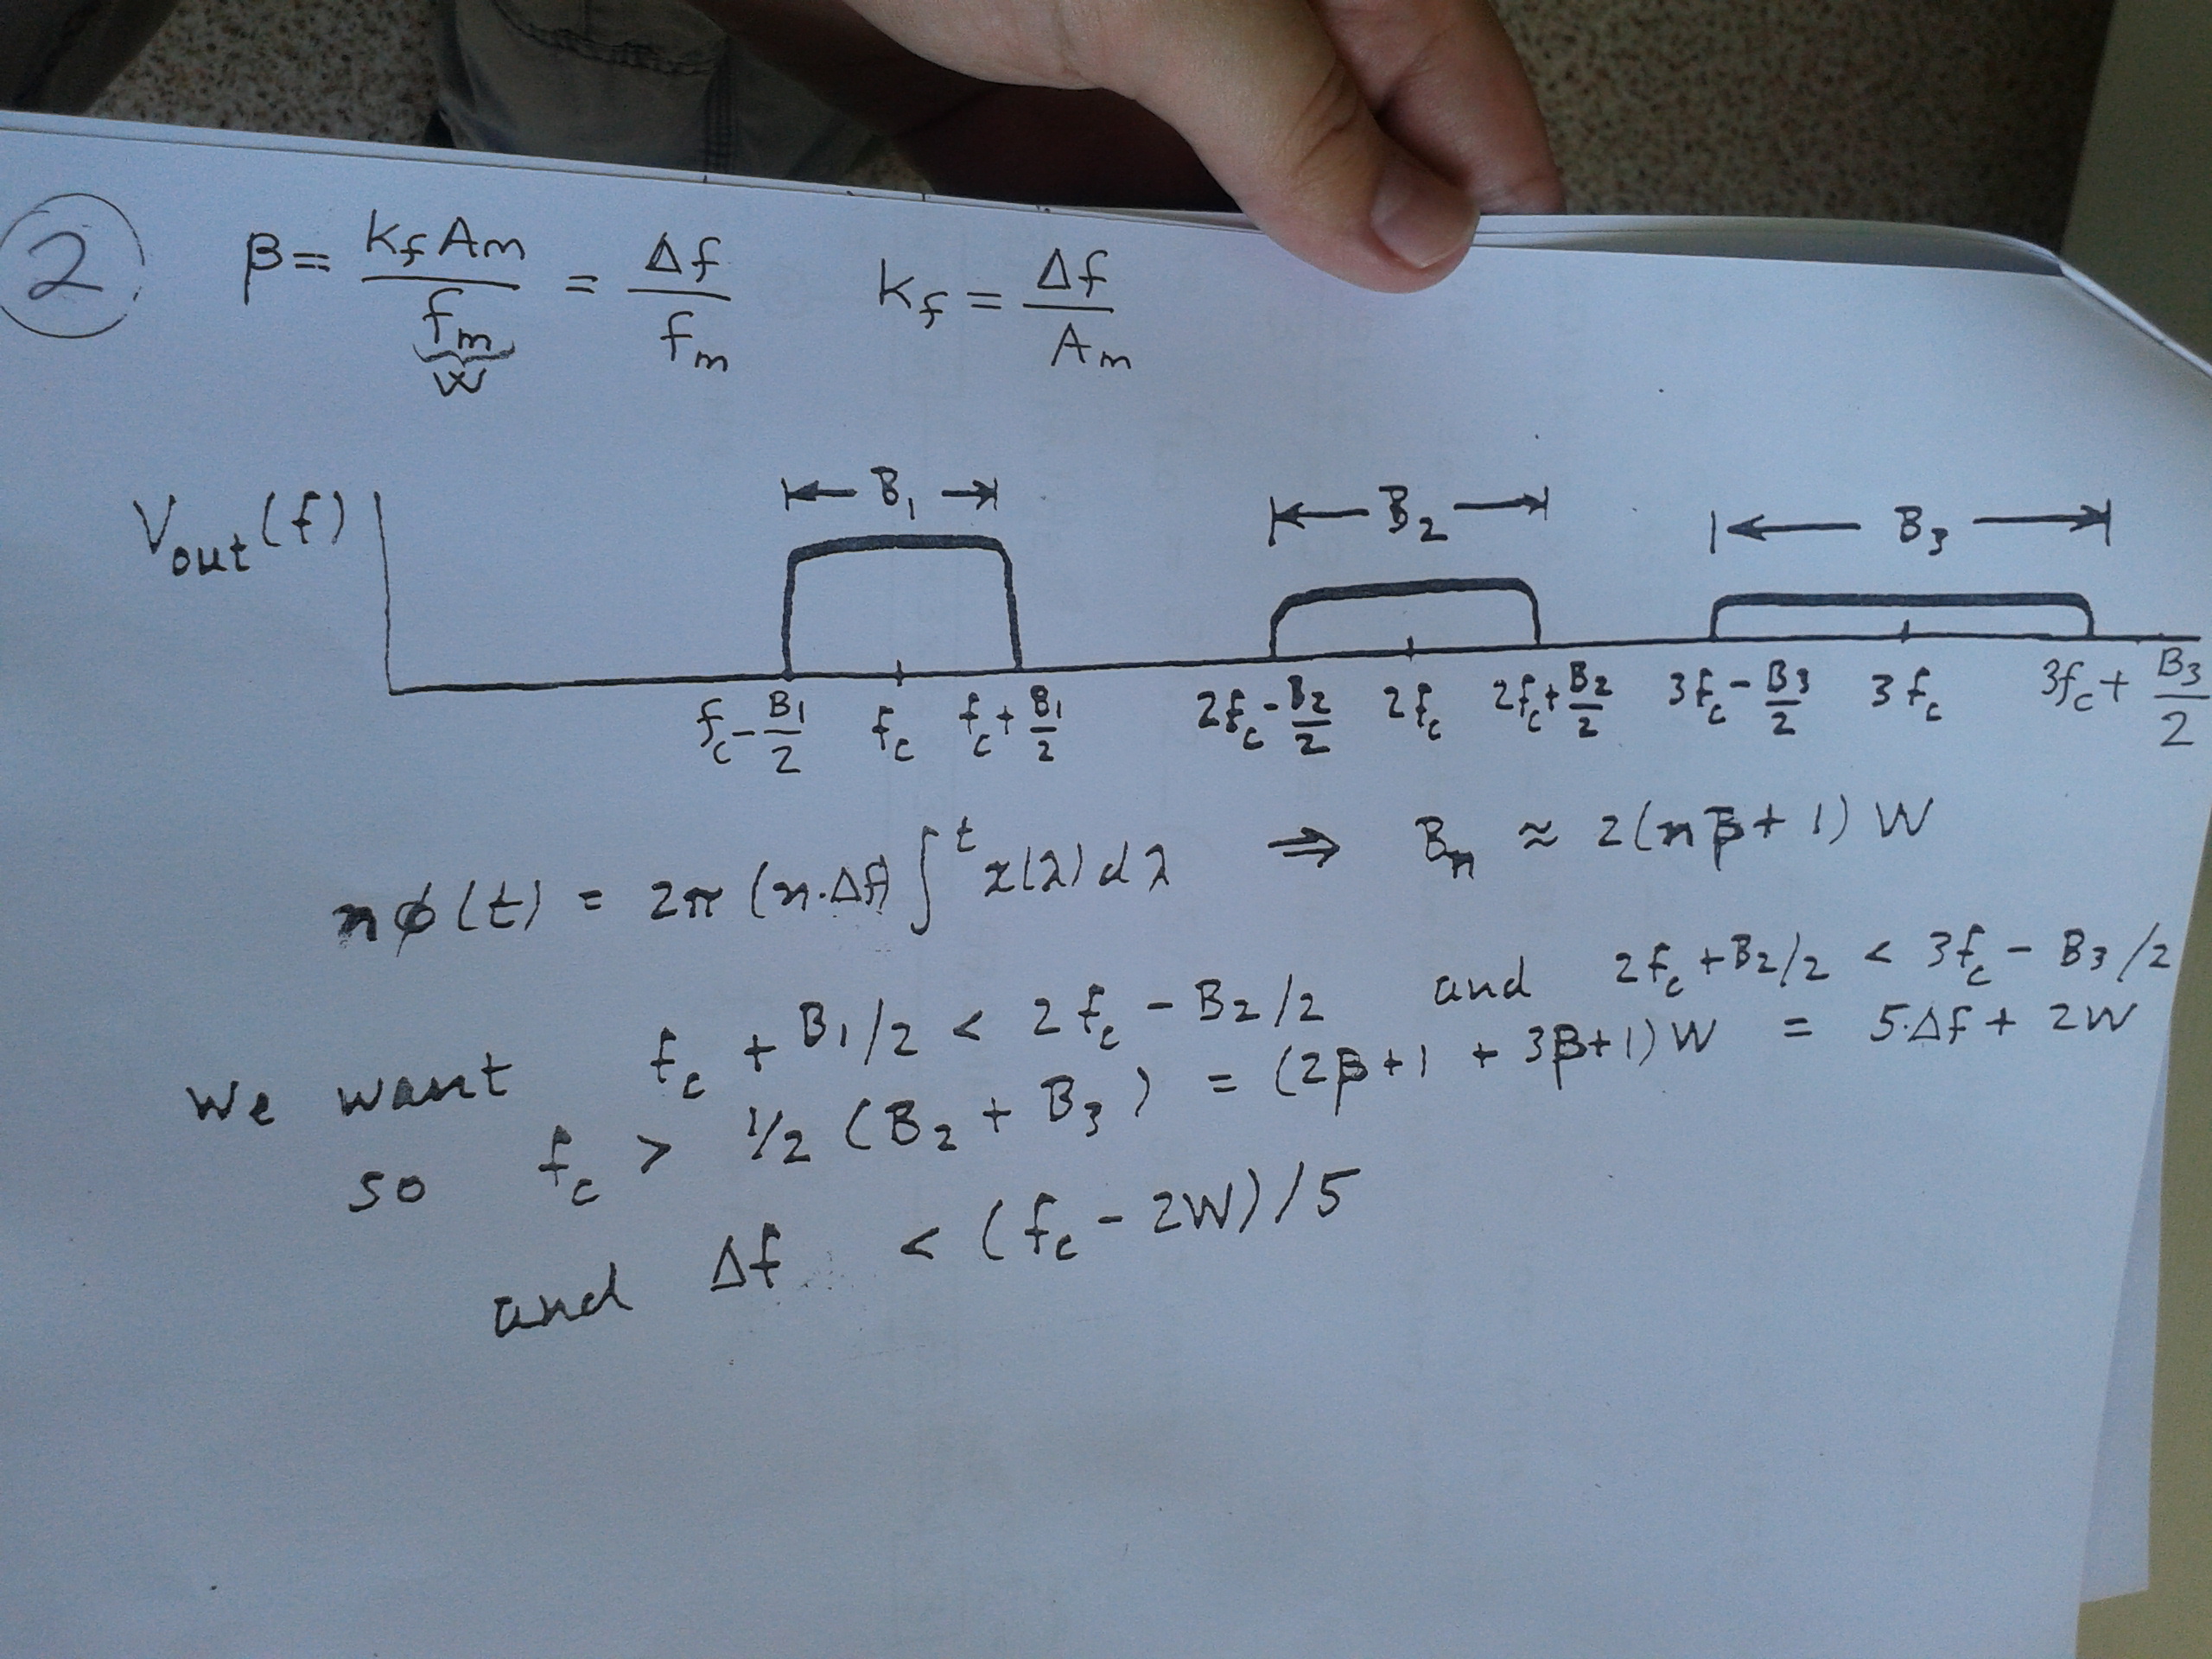 2
β = kf Am / fm = Δf / fm    kf = Δf / Am
W
Vout(f)
B1    B2    B3
fc - B1/2    fc    fc + B1/2    2fc - B2/2    2fc    2fc + B2/2    3fc - B3/2    3fc    3fc + B3/2
nφ(t) = 2π (n·Δf) ∫^t x(λ) dλ ⇒ Bn ≈ 2(nβ + 1) W
We want fc + B1/2 < 2fc - B2/2 and 2fc + B2/2 < 3fc - B3/2
so fc > 1/2 (B2 + B3) = (2β+1 + 3β+1) W = 5·Δf + 2W
and Δf < (fc - 2W)/5